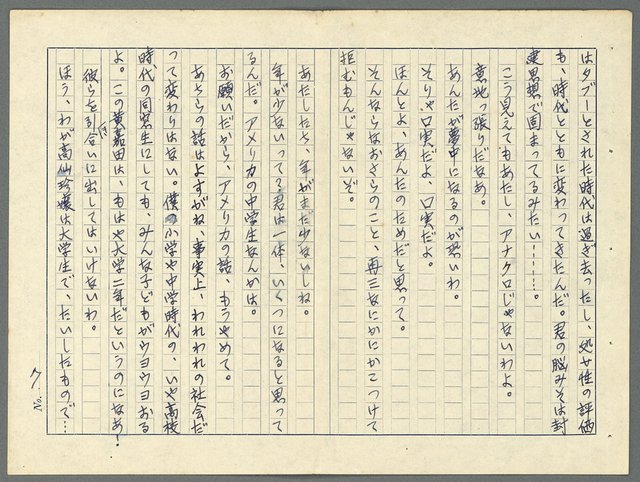 はタブーとされた時代は過ぎ去ったし、処女性の評価
も、時代とともに変わってきたんだ。君の脳みそは封
建思想で固まってるみたい………。
こう見えてもあたし、アナクロじゃないわよ。
意地っ張りだなあ。
あんたが夢中になるのが恐いわ。
そりゃ口実だよ、口実だよ。
ほんとよ、あんたのためだと思って。
そんならなおさらのこと、再三なにかにかこつけて
拒むもんじゃないぞ。
あたしたち、年がまだ少ないしね。
年が少ないって？君は一体、いくつになると思って
るんだ。アメリカの中学生なんかは。
お願いだから、アメリカの話、もうやめて。
あちらの話はよすがね、事実上、われわれの社会だ
って変わりはない。僕の小学や中学時代の、いや高校
時代の同窓生にしても、みんな子どもがウヨウヨおる
よ。この黄嘉田は、もはや大学二年だというのになあ！
彼らを引き合いに出してはいけないわ。
ほう、わが高仙玲嬢は大学生で、たいしたもので…
No. 7